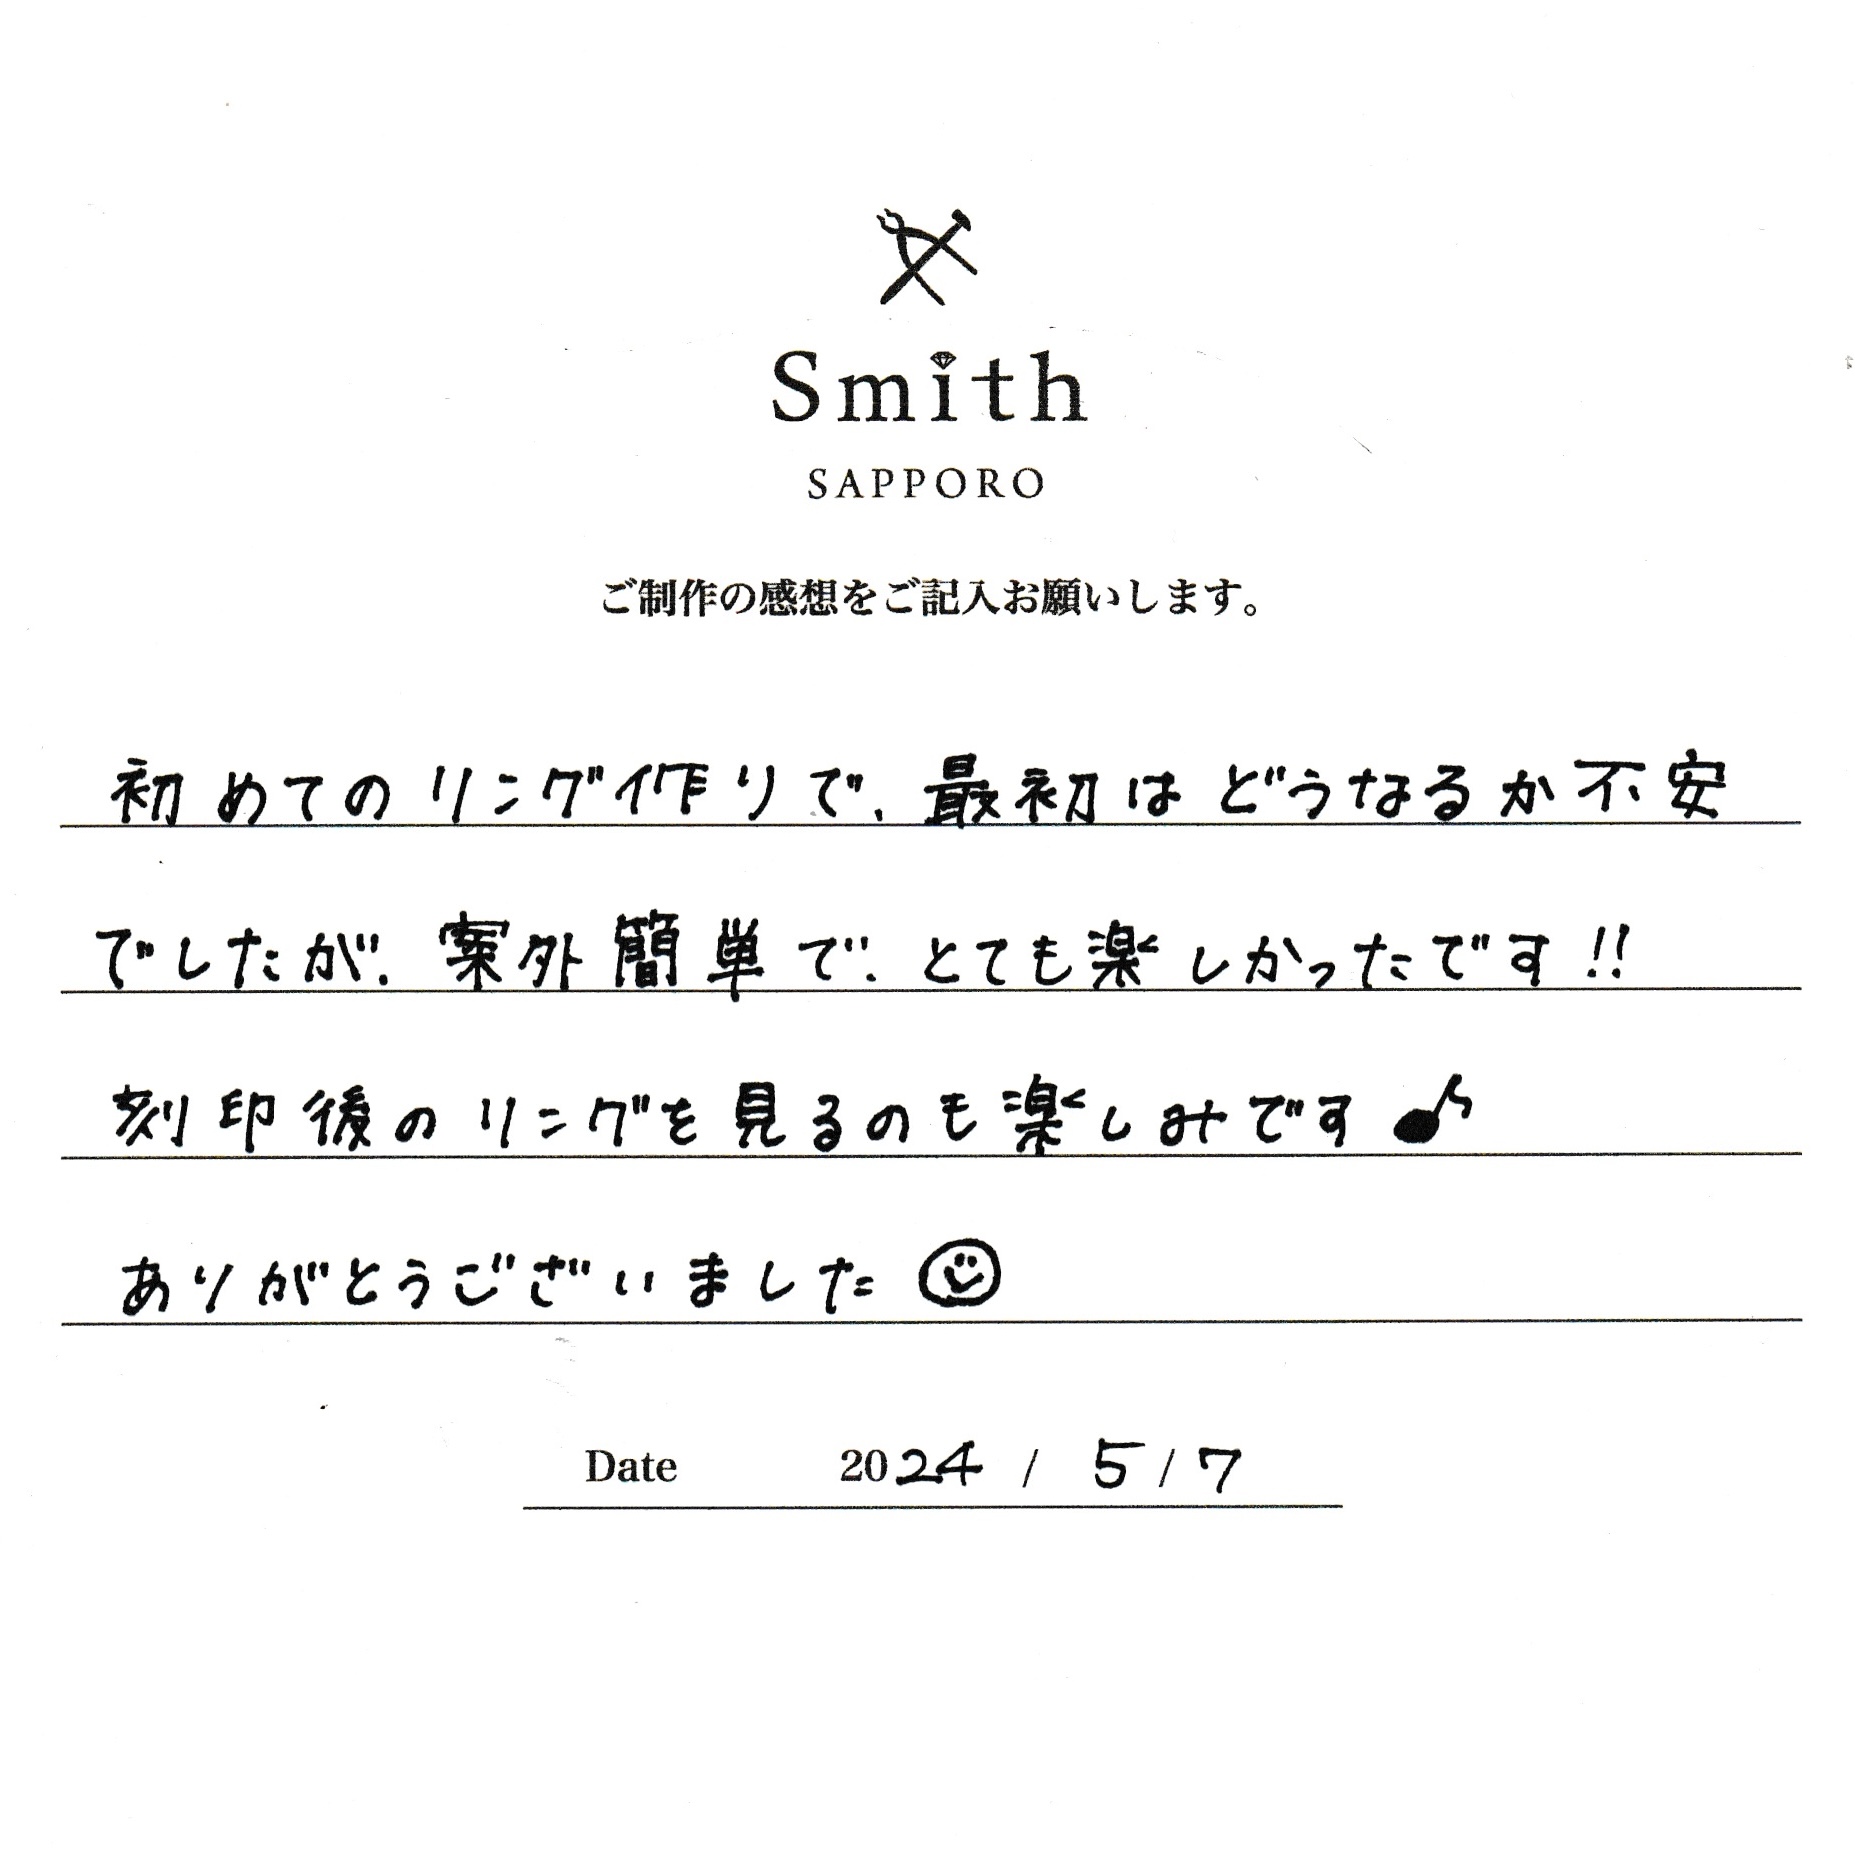 Smith
SAPPORO
ご制作の感想をご記入お願いします。
初めてのリング作りで、最初はどうなるか不安
でしたが、案外簡単で、とても楽しかったです!!
刻印後のリングを見るのも楽しみです♪
ありがとうございました☺
Date 2024 / 5 / 7